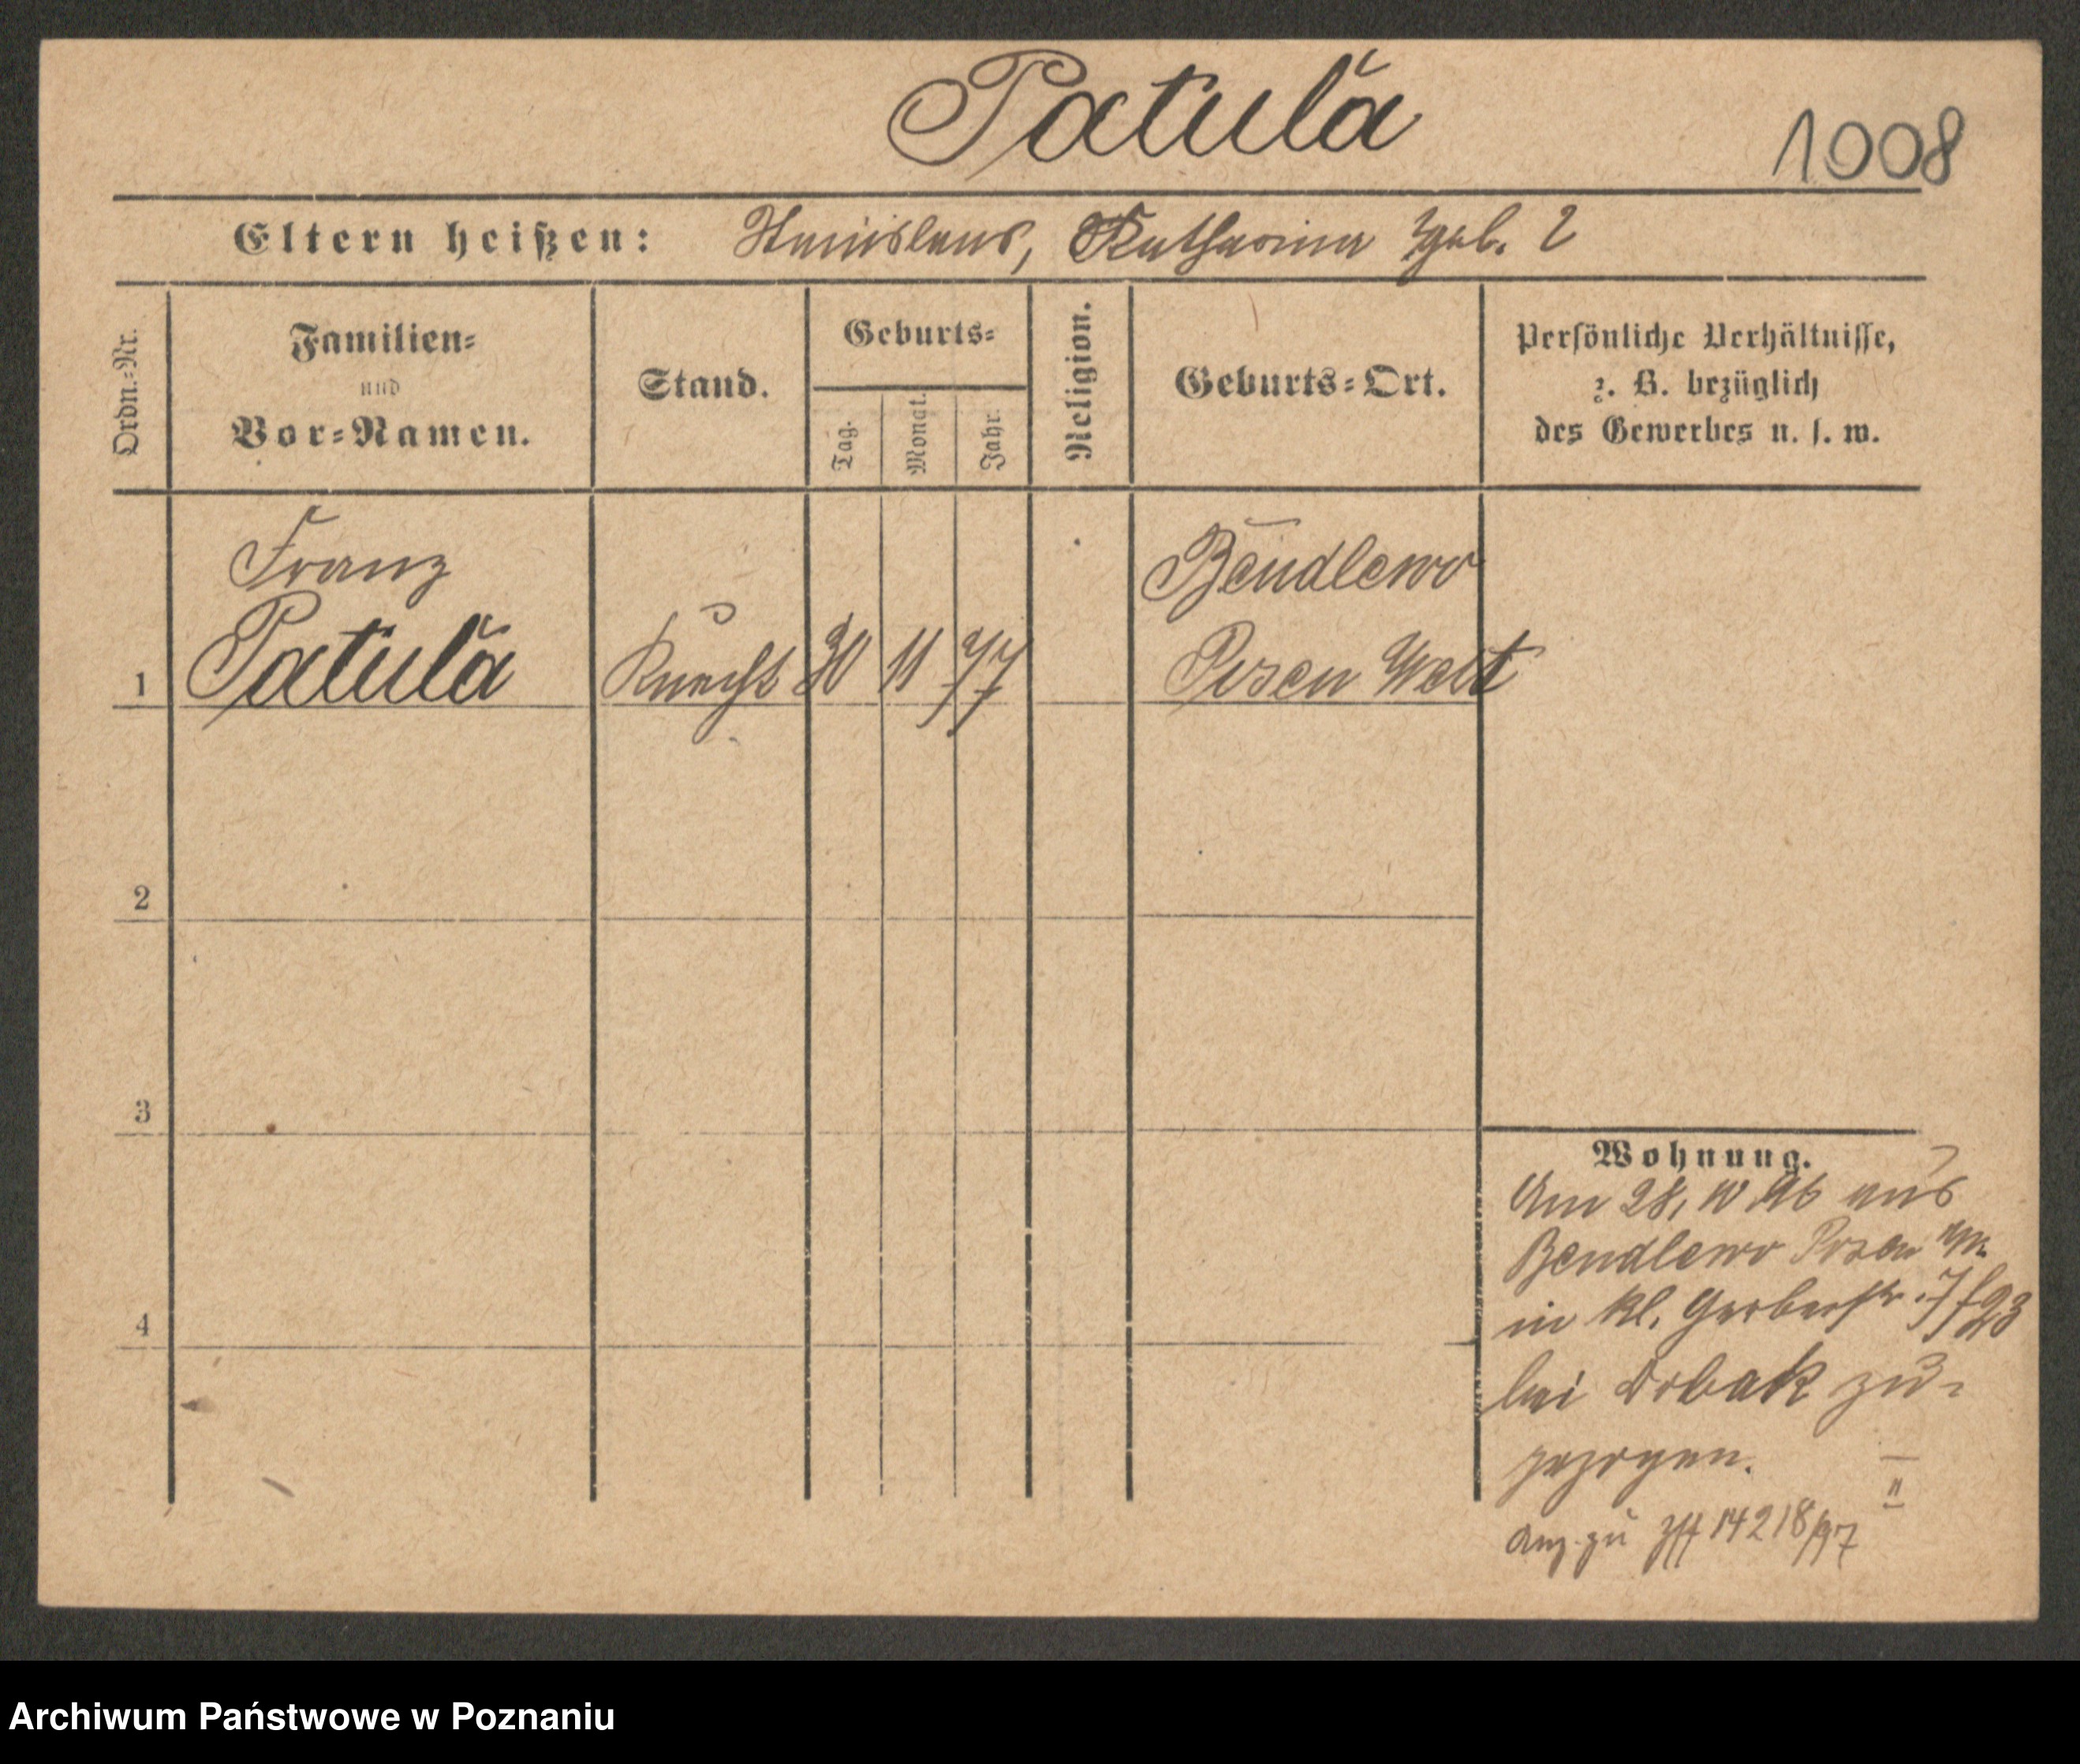 Patula
1008
Eltern heißen: Stanislaus, Katharina geb. ?
Ordn.-Nr.
Familien- und Vor-Namen.
Stand.
Geburts-
Tag.
Monat.
Jahr.
Religion.
Geburts-Ort.
Persönliche Verhältnisse,
z. B. bezüglich
des Gewerbes u. s. w.
Franz
Bendlewo
1 Patula Knecht 30 11 77 Posen West
2
3
4
Wohnung.
Am 28, 10 96 aus
Bendlewo Posen W.
in kl. Gerberstr. 7
bei Drbak zu-
gezogen.
Anz. zu 14218/97
Archiwum Państwowe w Poznaniu